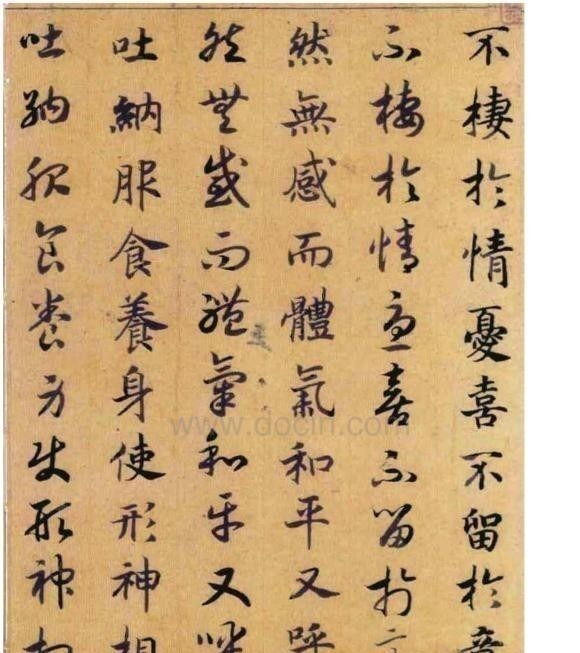 不棲於情憂喜不留於意
不棲於情憂喜不留於意
然無感而體氣和平又呼
然無感而體氣和平又呼
吐納服食養身使形神相
吐納服食養身使形神相
www.docin.com